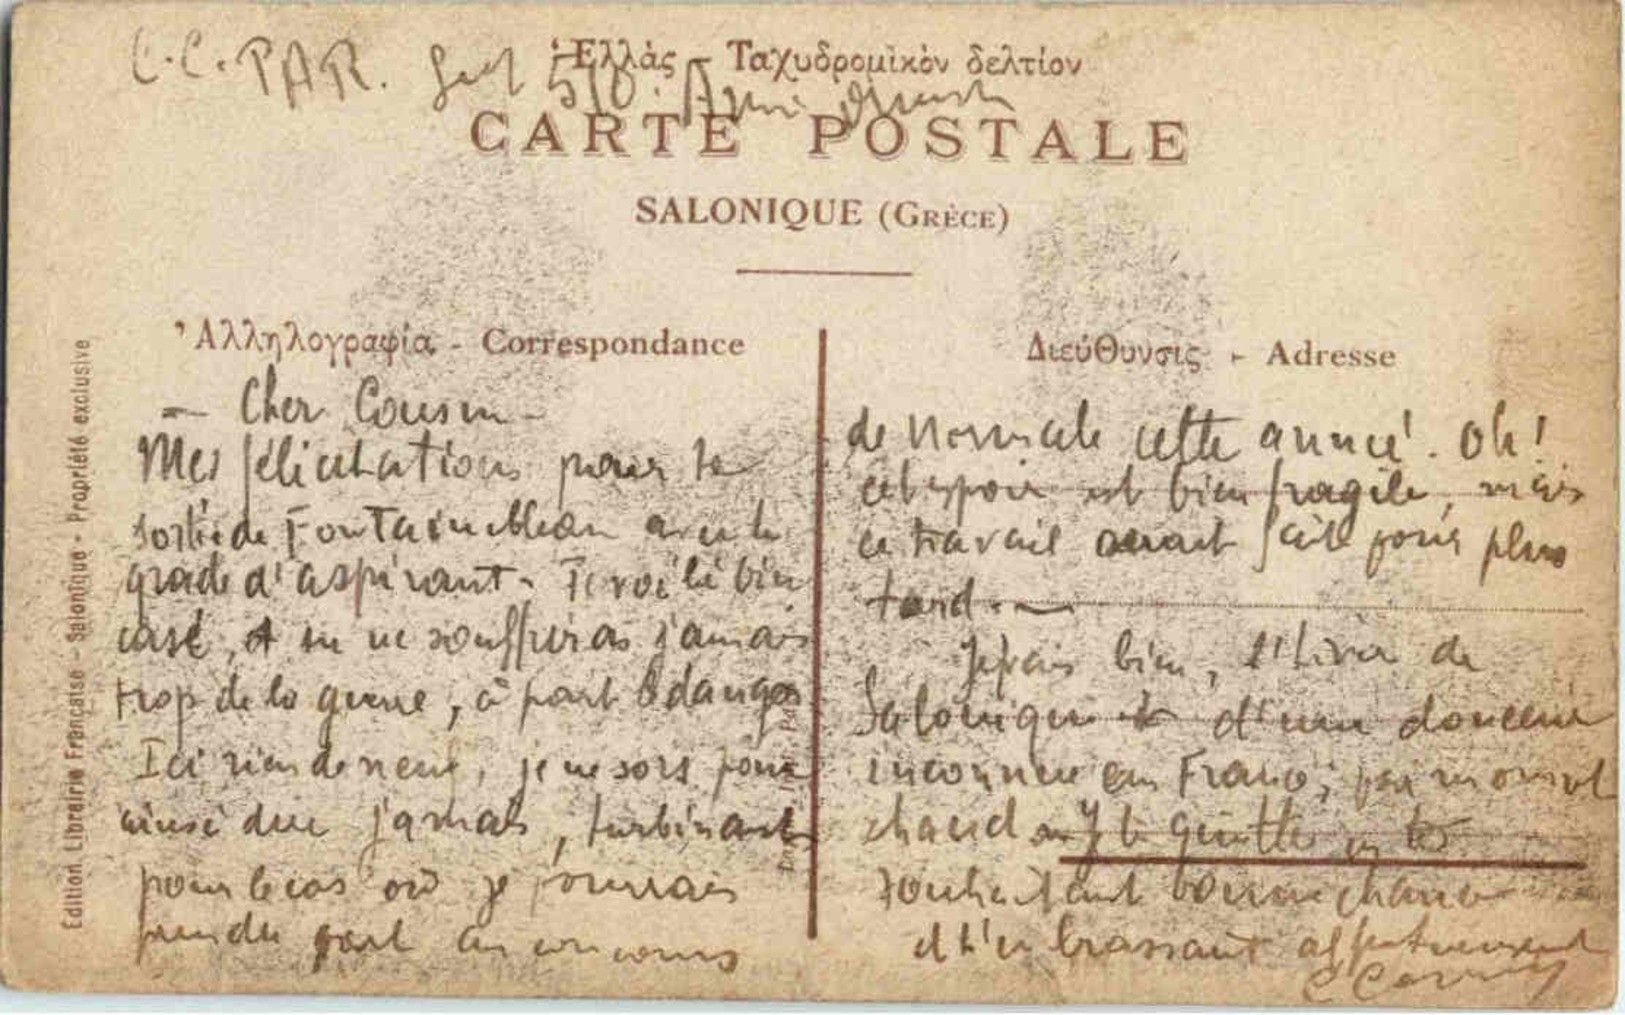 Ἑλλάς - Ταχυδρομικὸν δελτίον
C.C. PAR. Sect 510. Armée
CARTE POSTALE
SALONIQUE (GRÈCE)
Ἀλληλογραφία - Correspondance
- Cher Cousin -
Mes félicitations pour ta
sortie de Fontainebleau avec le
grade d'aspirant. Te voilà bien
casé, et tu ne souffriras jamais
trop de la guerre, à part le danger
Ici rien de neuf, je ne sors pour
ainsi dire jamais, turbinant
pour le cas où je pourrais
prendre part au concours
Διεύθυνσις - Adresse
de Normale cette année. Oh!
cet espoir est bien fragile, mais
ce travail serait fait pour plus
tard. -
Je vais bien, l'hiver de
Salonique est d'une douceur
inconnue en France,
chaud Je te quitte en te
souhaitant bonne chance
et t'embrassant affectueusement
Edition Librairie Française - Salonique - Propriété exclusive